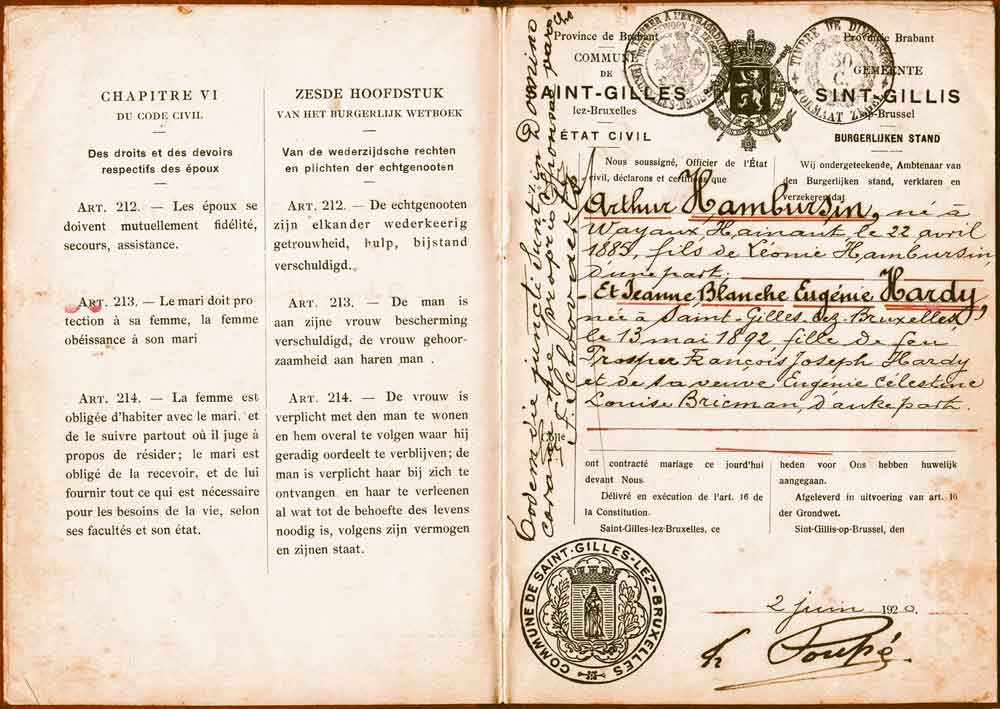 CHAPITRE VI
DU CODE CIVIL
Des droits et des devoirs
respectifs des époux
ART. 212. — Les époux se
doivent mutuellement fidélité,
secours, assistance.
ART. 213. — Le mari doit pro
tection à sa femme, la femme
obéissance à son mari
ART. 214. — La femme est
obligée d'habiter avec le mari, et
de le suivre partout où il juge à
propos de résider; le mari est
obligé de la recevoir, et de lui
fournir tout ce qui est nécessaire
pour les besoins de la vie, selon
ses facultés et son état.
ZESDE HOOFDSTUK
VAN HET BURGERLIJK WETBOEK
Van de wederzijdsche rechten
en plichten der echtgenooten
ART. 212. — De echtgenooten
zijn elkander wederkeerig
getrouwheid, hulp, bijstand
verschuldigd.
ART. 213. — De man is
aan zijne vrouw bescherming
verschuldigd, de vrouw gehoor-
zaamheid aan haren man.
ART. 214. — De vrouw is
verplicht met den man te wonen
en hem overal te volgen waar hij
geradig oordeelt te verblijven; de
man is verplicht haar bij zich te
ontvangen en haar te verleenen
al wat tot de behoefte des levens
noodig is, volgens zijn vermogen
en zijnen staat.
Codem die juncti sunt in Domino
coram me proprio Sponsae paroc
Province de Brabant
COMMUNE
DE
SAINT-GILLES
lez-Bruxelles
ÉTAT CIVIL
Provincie Brabant
GEMEENTE
SINT-GILLIS
op-Brussel
BURGERLIJKEN STAND
TIMBRE DE DIMENSION
50
C.
FORMAAT ZEGEL
Nous soussigné, Officier de l'État
civil, déclarons et certifions que
Wij ondergeteekende, Ambtenaar van
den Burgerlijken stand, verklaren en
verzekeren dat
Arthur Hambursin, né à
Wayaux Hainaut le 22 avril
1885, fils de Léonie Hambursin,
D'une part;
— Et Jeanne Blanche Eugénie Hardy,
née à Saint-Gilles-lez-Bruxelles
le 13 mai 1892 fille de feu
Prosper François Joseph Hardy
et de sa veuve Eugénie Célestine
Louise Bricman, D'autre part.
ont contracté mariage ce jourd'hui
devant Nous.
Délivré en exécution de l'art. 16 de
la Constitution.
Saint-Gilles-lez-Bruxelles, ce
heden voor Ons hebben huwelijk
aangegaan.
Afgeleverd in uitvoering van art. 16
der Grondwet.
Sint-Gillis-op-Brussel, den
2 juin 1920.
COMMUNE DE SAINT-GILLES-LEZ-BRUXELLES